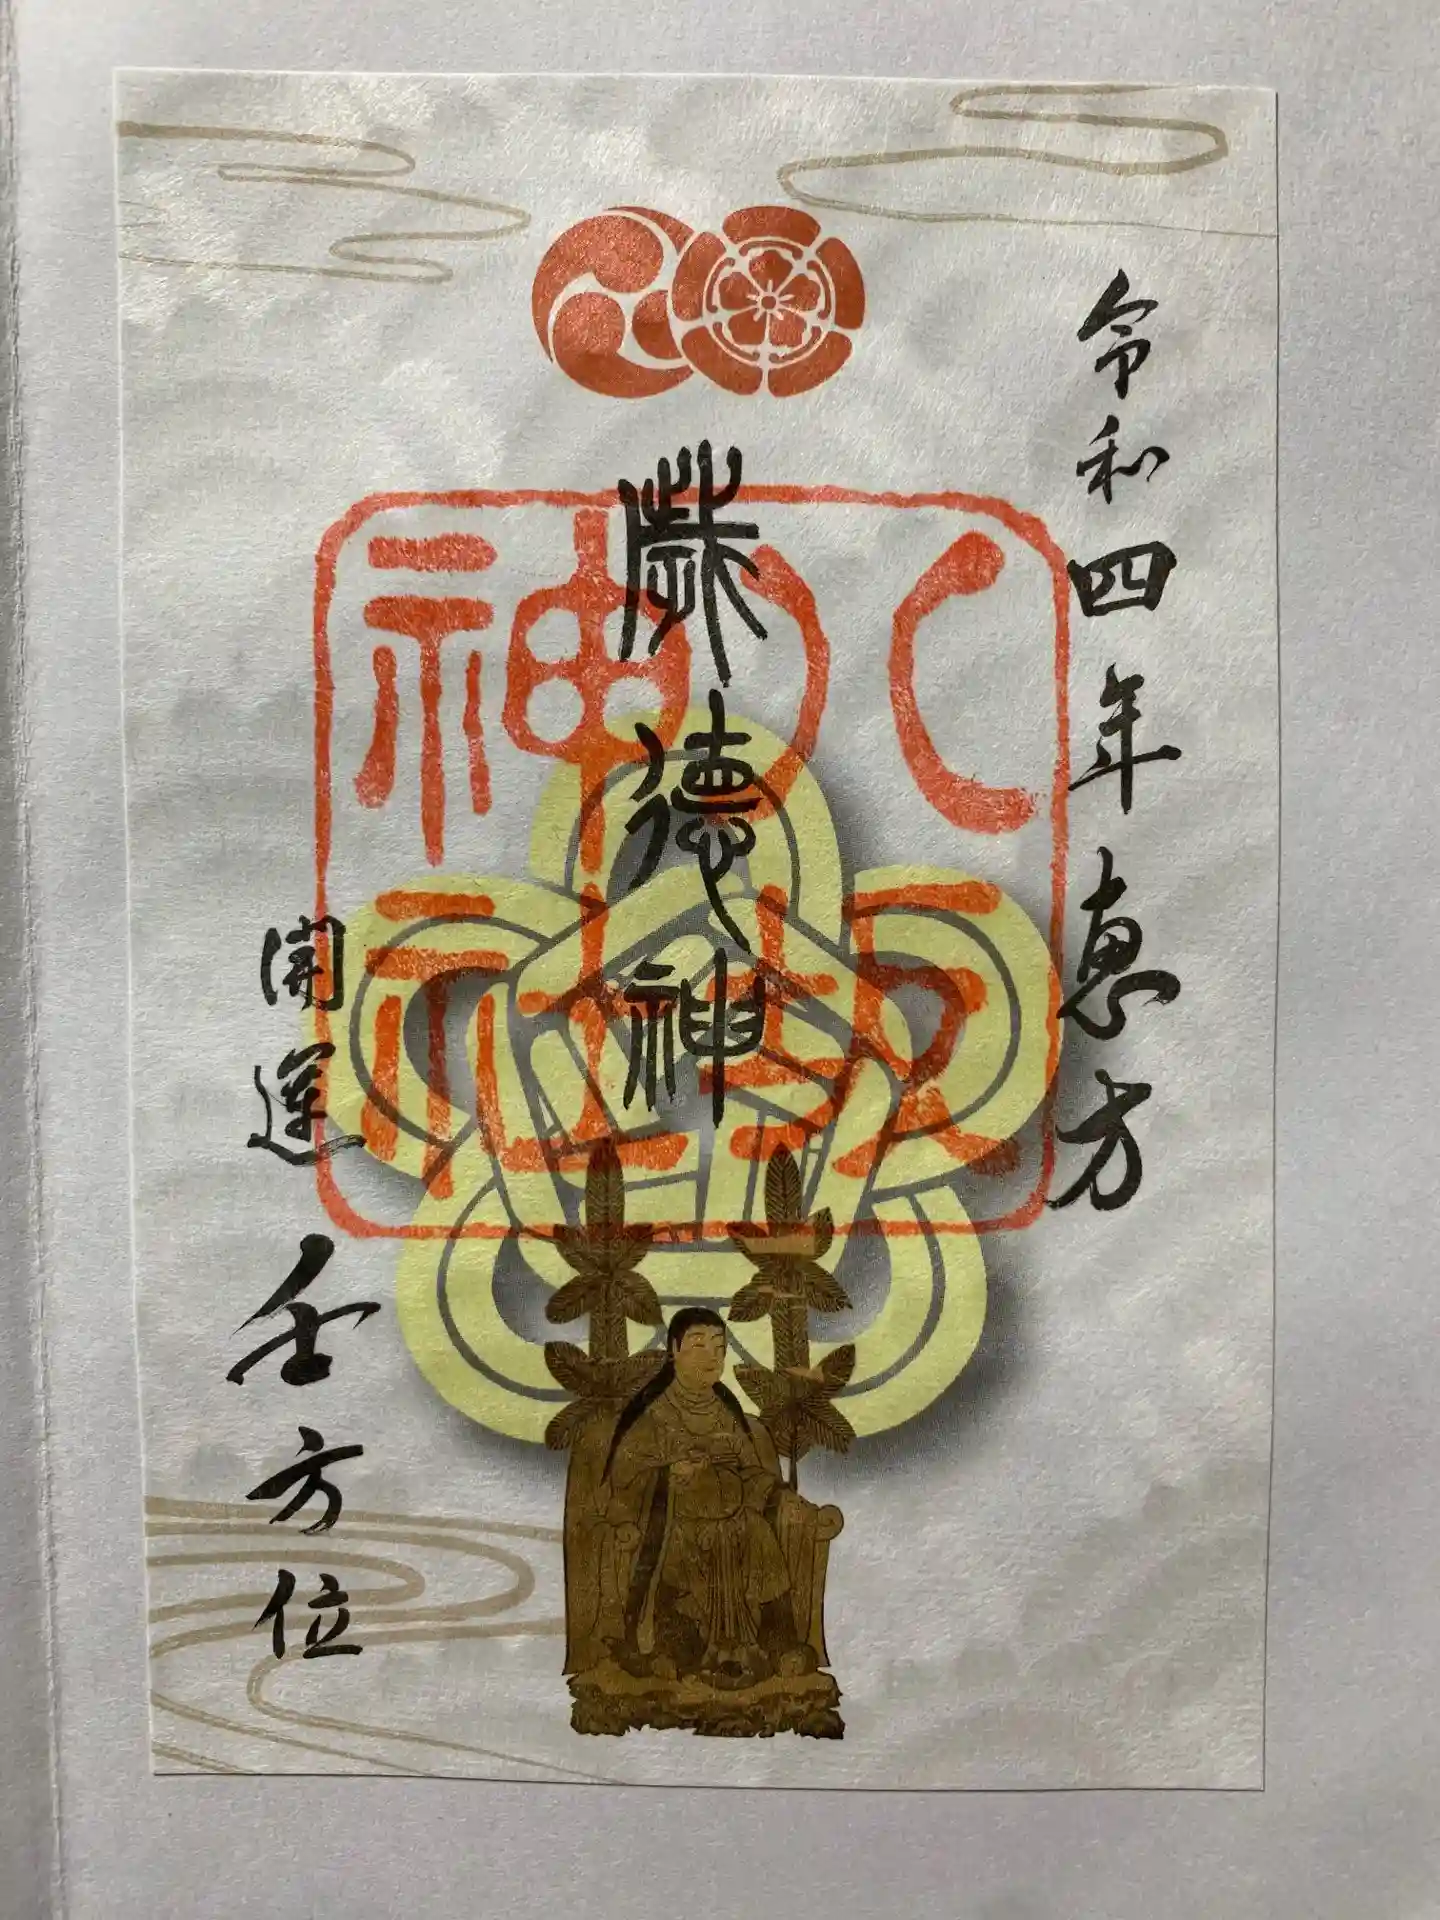 令和四年恵方
歳徳神
八坂
神社
開運壬方位